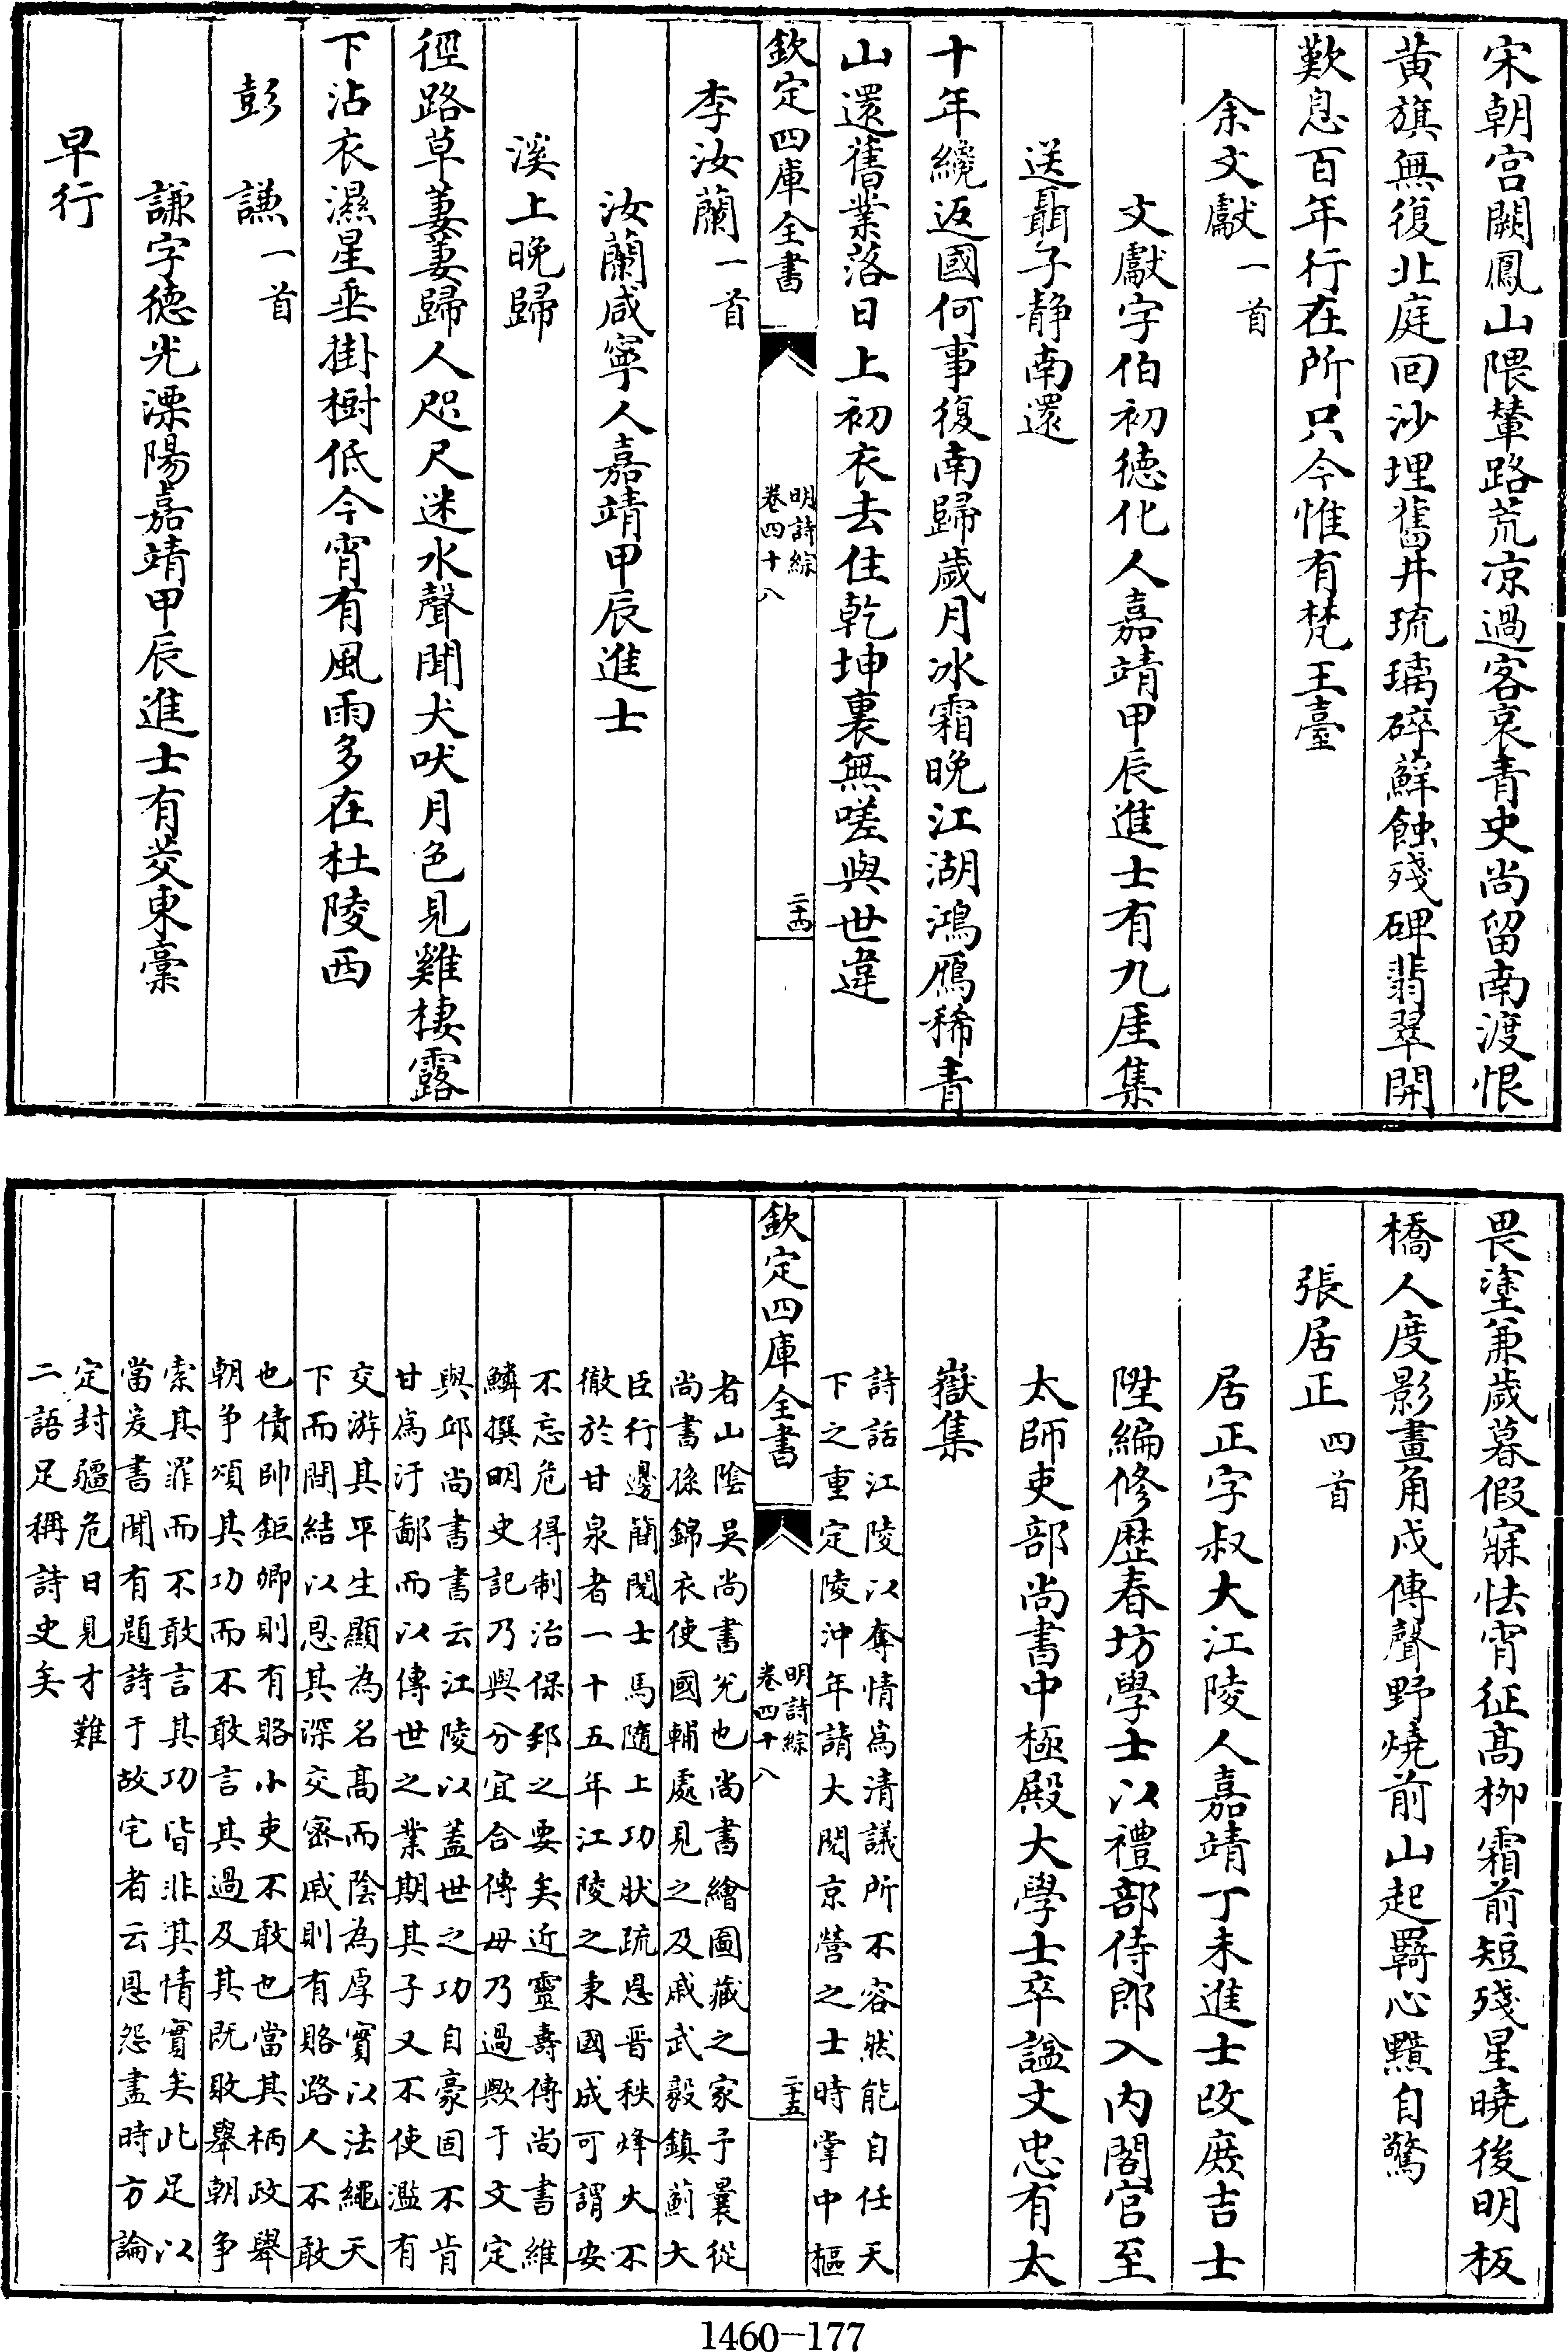 宋朝宫闕鳳山隈輦路荒凉過客哀青史尚留南渡恨
黄旗無復北庭回沙埋舊井琉璃碎蘚蝕殘碑翡翠開
歎息百年行在所只今惟有梵王臺
余文獻一首
文獻字伯初德化人嘉靖甲辰進士有九厓集
送聶子静南還
十年纔返國何事復南歸歲月冰霜晚江湖鴻鴈稀青
山還舊業落日上初衣去住乾坤裏無嗟與世違
欽定四庫全書
明詩綜
卷四十八
二十四
李汝蘭一首
汝蘭咸寧人嘉靖甲辰進士
溪上晚歸
徑路草萋萋歸人咫尺迷水聲聞犬吠月色見雞棲露
下沾衣濕星垂掛樹低今宵有風雨多在杜陵西
彭謙一首
謙字德光溧陽嘉靖甲辰進士有茭東藁
早行
畏塗兼歲暮假寐怯宵征高柳霜前短殘星曉後明板
橋人度影畫角戍傳聲野燒前山起羇心黯自驚
張居正四首
居正字叔大江陵人嘉靖丁未進士改庶吉士
陞編修歴春坊學士以禮部侍郎入内閣官至
太師吏部尚書中極殿大學士卒諡文忠有太
嶽集
詩話江陵以奪情為清議所不容然能自任天
下之重定陵沖年請大閱京營之士時掌中樞
欽定四庫全書
明詩綜
卷四十八
二十五
者山陰吳尚書兌也尚書繪圖藏之家予曩從
尚書孫錦衣使國輔處見之及戚武毅鎮薊大
臣行邊簡閱士馬隨上功狀疏恩晋秩烽火不
徹於甘泉者一十五年江陵之秉國成可謂安
不忘危得制治保邦之要矣近靈壽傅尚書維
鱗撰明史記乃與分宜合傳毋乃過歟于文定
與邱尚書書云江陵以蓋世之功自豪固不肯
甘為汙鄙而以傳世之業期其子又不使濫有
交游其平生顯為名高而陰為厚實以法繩天
下而間結以恩其深交密戚則有賂路人不敢
也債帥鉅卿則有賂小吏不敢也當其柄政舉
朝争頌其功而不敢言其過及其既敗舉朝争
索其罪而不敢言其功皆非其情實矣此足以
當爰書聞有題詩于故宅者云恩怨盡時方論
定封疆危日見才難
二語足稱詩史矣
1460-177